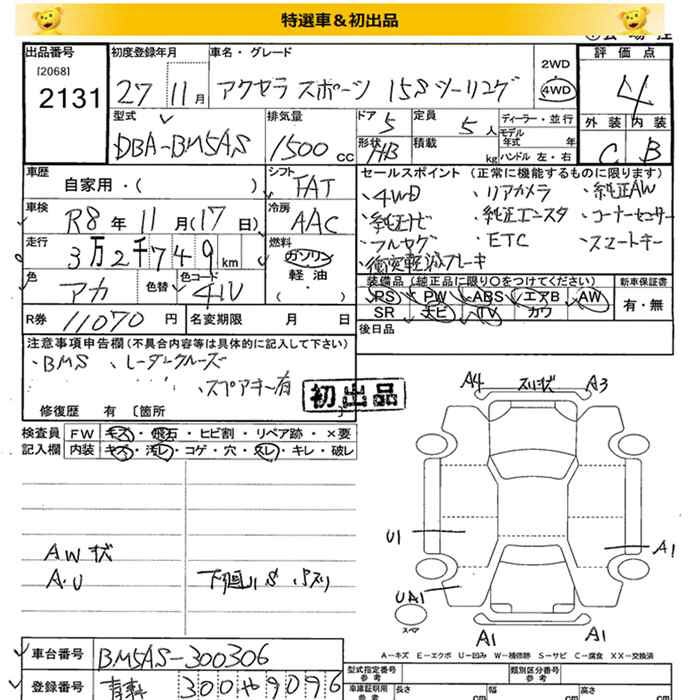 特選車&初出品
出品番号 初度登録年月 車名・グレード 2WD 評価点
[2068] 2131 27 11月 アクセラ スポーツ 15S ツーリング 4WD 4
型式 排気量 ドア 定員 ディーラー・並行 外装 内装
DBA-BM5AS 1500 CC 5 5人 モデル年式 年
形状 HB 積載 kg ハンドル 左・右 C B
車歴 シフト セールスポイント (正常に機能するものに限ります)
自家用・( ) FAT ・4WD ・リアカメラ ・純正AW
車検 冷房 ・純正ナビ ・純正エンスタ ・コーナーセンサー
R8年 11月(17日) AAC ・フルセグ ・ETC ・スマートキー
走行 燃料 ・衝突軽減ブレーキ
3万2千749km ガソリン 軽油 ・( )
色 色替 色コード 装備品 (純正品に限り○をつけてください) 新車保証書
アカ 41V PS PW ABS エアB AW 有・無
SR ナビ TV カワ
R券 11070円 名変期限 月 日 後日品
注意事項申告欄(不具合内容等は具体的に記入して下さい)
・BMS ・レーダークルーズ
・スペアキー有
初出品
修復歴 有 〔箇所 〕
検査員 FW キズ・飛石・ヒビ割・リペア跡・×要
記入欄 内装 キズ・汚レ・コゲ・穴・スレ・キレ・破レ
A4 スリ状 A3
U1 A1
AWキズ
A・U 下廻りS・スリ
UA1
スペア
A1 A1
A-キズ E-エクボ U-凹み W-補修跡 S-サビ C-腐食 XX-交換済
車台番号 BM5AS-300306
型式指定番号 参考 類別区分番号 参考
登録番号 300や9096
車庫証明用 参考 長さ cm 幅 cm 高さ cm